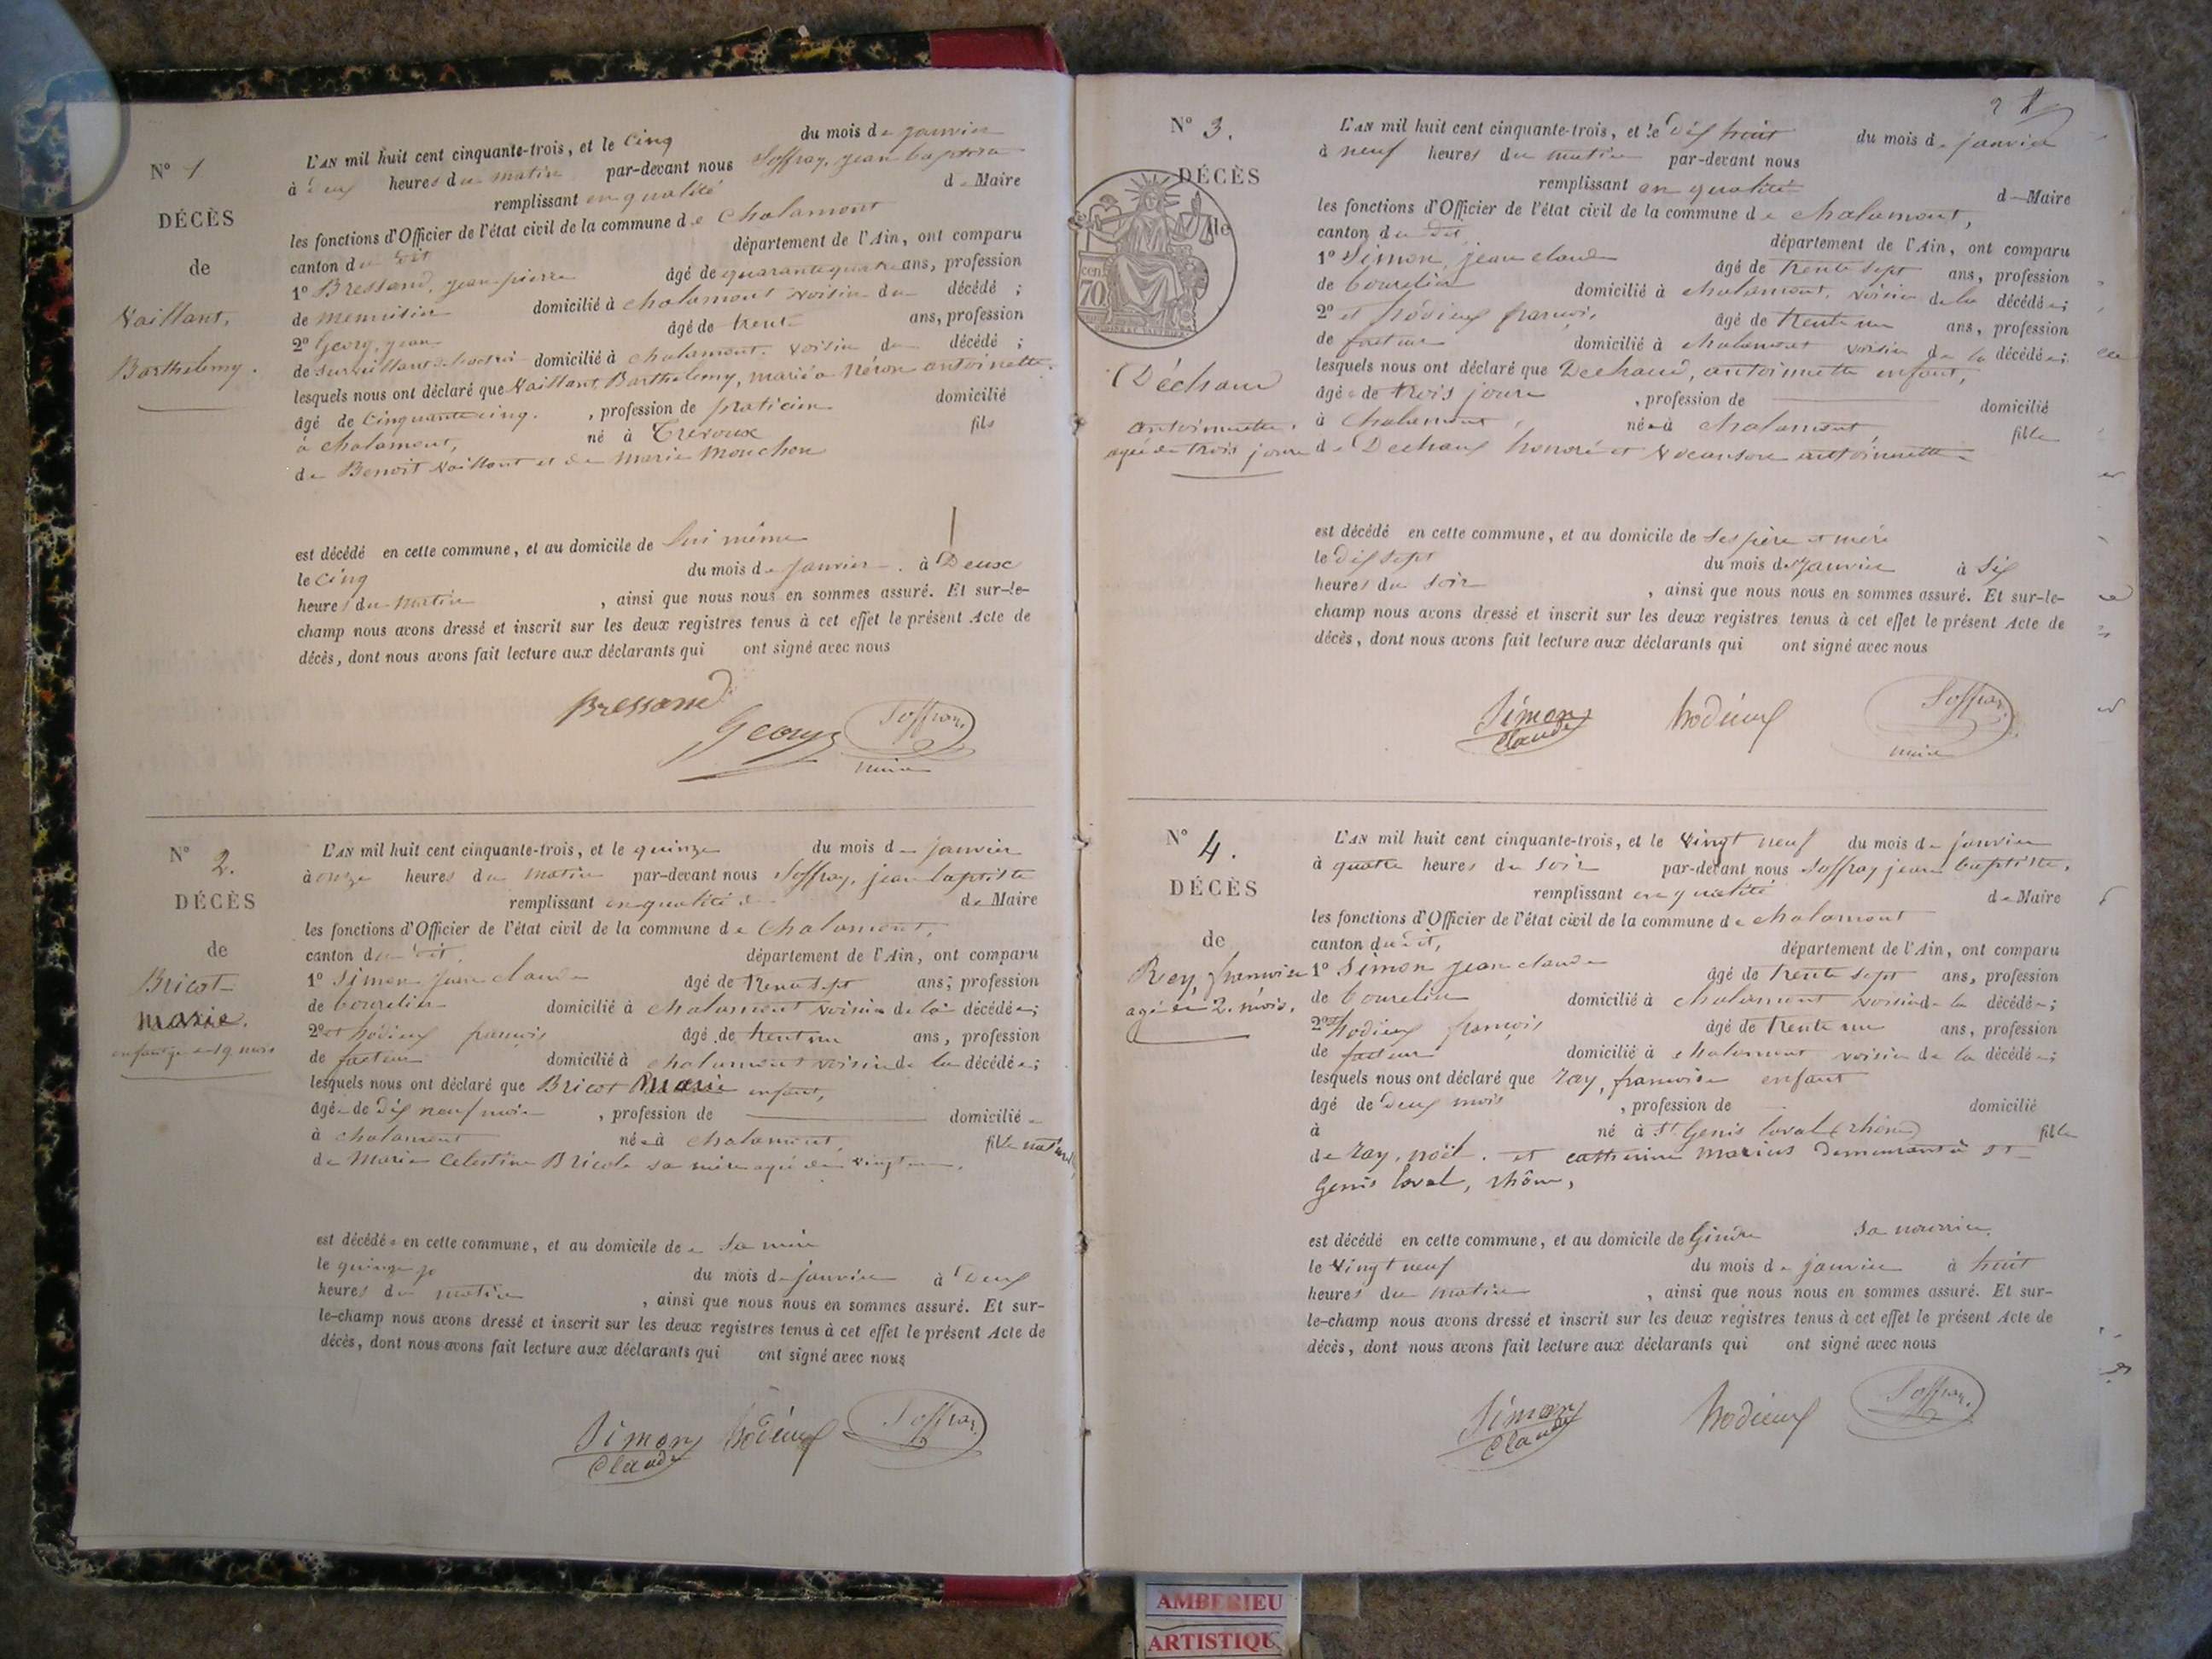 N° 1
DÉCÈS
de
Vaillant,
Barthelemy.
L'AN mil huit cent cinquante-trois, et le Cinq du mois de janvier
à heures du matin par-devant nous Joffray, jean baptiste
remplissant en qualité de Maire
les fonctions d'Officier de l'état civil de la commune de Chalamont
canton du dit département de l'Ain, ont comparu
1° Bressand, jean pierre âgé de quarante quatre ans, profession
de menuisier domicilié à chalamont voisin du décédé ;
2° Georg, jean âgé de trente ans, profession
de surveillant domicilié à chalamont. voisin du décédé ;
lesquels nous ont déclaré que Vaillant, Barthelemy, marié à Néron antoinette.
âgé de Cinquante cinq. , profession de praticien domicilié
à chalamont, né à Trévoux fils
de Benoit Vaillant et de Marie Mouchon
est décédé en cette commune, et au domicile de lui même
le Cinq du mois de janvier. à Deux
heures du matin , ainsi que nous nous en sommes assuré. Et sur-le-
champ nous avons dressé et inscrit sur les deux registres tenus à cet effet le présent Acte de
décès, dont nous avons fait lecture aux déclarants qui ont signé avec nous
Bressand
Georg
Joffray
maire
N° 2.
DÉCÈS
de
Bricot
Marie.
enfant 19 mois
L'AN mil huit cent cinquante-trois, et le quinze du mois de janvier
à onze heures du matin par-devant nous Joffray, jean baptiste
remplissant en qualité de Maire
les fonctions d'Officier de l'état civil de la commune de Chalamont,
canton du dit. département de l'Ain, ont comparu
1° Simon jean claude âgé de trente sept ans ; profession
de bourelier domicilié à chalamont voisin de la décédée ;
2° et hodieux francois âgé de trent un ans, profession
de facteur domicilié à chalamont voisin de la décédée ;
lesquels nous ont déclaré que Bricot Marie enfant,
âgée de dix neuf mois , profession de domiciliée
à chalamont née à chalamont, fille
de Marie Celestine Bricot sa mère agée de vingt
est décédée en cette commune, et au domicile de sa mère
le quinze du mois de janvier à deux
heures du matin , ainsi que nous nous en sommes assuré. Et sur-
le-champ nous avons dressé et inscrit sur les deux registres tenus à cet effet le présent Acte de
décès, dont nous avons fait lecture aux déclarants qui ont signé avec nous
Simon hodieux Joffray
Claude
2
N° 3.
DÉCÈS
cen
70
Déchaux
antoinette.
agée de trois jours
L'AN mil huit cent cinquante-trois, et le dix huit du mois de janvier
à neuf heures du matin par-devant nous
remplissant en qualité de Maire
les fonctions d'Officier de l'état civil de la commune de chalamont,
canton du dit département de l'Ain, ont comparu
1° Simon, jean claude âgé de trente sept ans, profession
de bourelier domicilié à chalamont, voisin de la décédée ;
2° et hodieux francois, âgé de trente un ans, profession
de facteur domicilié à chalamont voisin de la décédée ;
lesquels nous ont déclaré que Dechaux, antoinette enfant,
âgée de trois jours , profession de domicilié
à Chalamont, née à chalamont, fille
de Dechaux honoré et antoinette
est décédé en cette commune, et au domicile de ses père et mère
le dix sept du mois de janvier à six
heures du soir , ainsi que nous nous en sommes assuré. Et sur-le-
champ nous avons dressé et inscrit sur les deux registres tenus à cet effet le présent Acte de
décès, dont nous avons fait lecture aux déclarants qui ont signé avec nous
Simon hodieux Joffray
Claude maire
N° 4.
DÉCÈS
de
Rey, francoise
agée de 2. mois.
L'AN mil huit cent cinquante-trois, et le vingt neuf du mois de janvier
à quatre heures du soir par-devant nous Joffray jean baptiste,
remplissant en qualité de Maire
les fonctions d'Officier de l'état civil de la commune de chalamont
canton du dit, département de l'Ain, ont comparu
1° Simon jean claude âgé de trente sept ans, profession
de bourelier domicilié à chalamont voisin de la décédée ;
2° et hodieux francois âgé de trente un ans, profession
de facteur domicilié à chalamont voisin de la décédée ;
lesquels nous ont déclaré que ray, francoise enfant
âgé de deux mois , profession de domicilié
à né à St Genis laval (rhône) fille
de ray, noël. et catherine marius demeurant à st
Genis laval, rhône,
est décédé en cette commune, et au domicile de Gindre sa nourrice
le vingt neuf du mois de janvier à huit
heures du matin , ainsi que nous nous en sommes assuré. Et sur-
le-champ nous avons dressé et inscrit sur les deux registres tenus à cet effet le présent Acte de
décès, dont nous avons fait lecture aux déclarants qui ont signé avec nous
Simon hodieux Joffray
Claude
AMBERIEU
ARTISTIQU